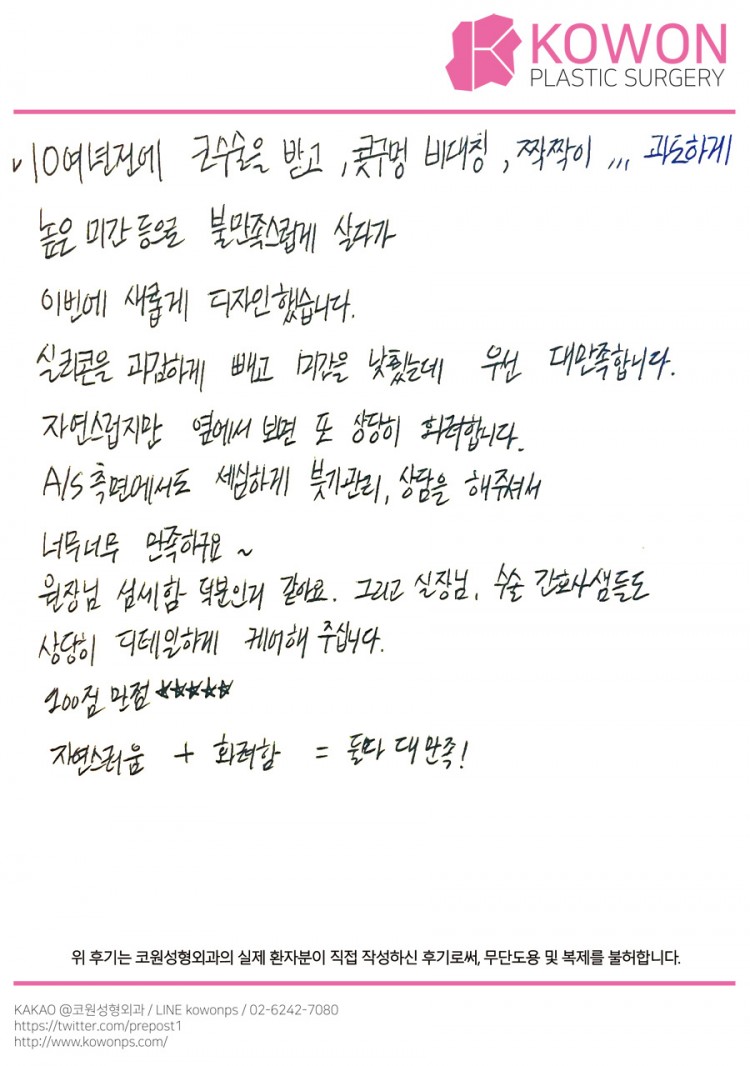 KOWON
PLASTIC SURGERY
✓10여년전에 코수술을 받고, 콧구멍 비대칭, 짝짝이 ,,, 과도하게
높은 미간 등으로 불만족스럽게 살다가
이번에 새롭게 디자인했습니다.
실리콘을 과감하게 빼고 미간을 낮췄는데 우선 대만족합니다.
자연스럽지만 옆에서 보면 또 상당히 화려합니다.
A/S 측면에서도 세심하게 붓기관리, 상담을 해주셔서
너무너무 만족하구요 ~
원장님 섬세함 덕분인거 같아요. 그리고 실장님, 수술 간호사샘들도
상당히 디테일하게 케어해 주십니다.
200점 만점 ★★★★★
자연스러움 + 화려함 = 둘다 대만족!
위 후기는 코원성형외과의 실제 환자분이 직접 작성하신 후기로써, 무단도용 및 복제를 불허합니다.
KAKAO @코원성형외과 / LINE kowonps / 02-6242-7080
https://twitter.com/prepost1
http://www.kowonps.com/